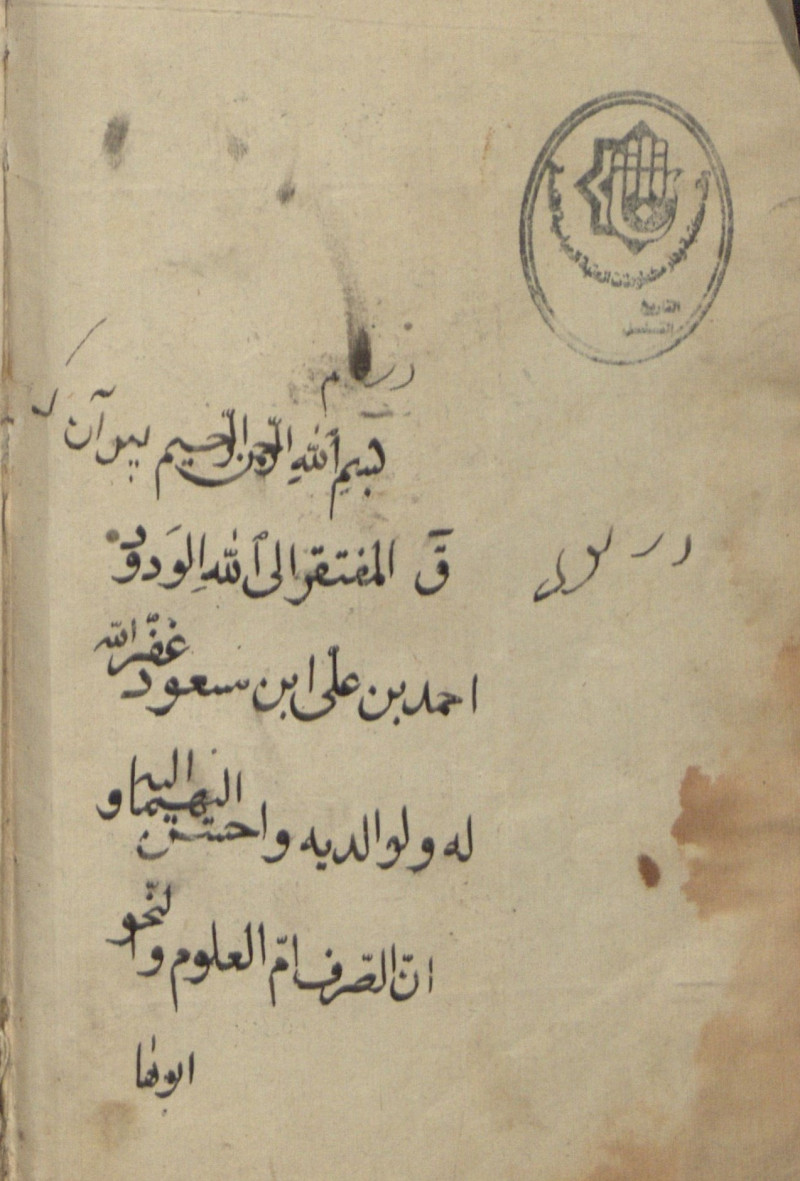 بسم الله الرحمن الرحيم
ق المفتقر الى الله الودود
احمد بن على ابن سعود غفر الله
له ولوالديه واحسن اليهما واليه
ان الصرف ام العلوم والنحو
ابوها
مكتبة ودار مخطوطات العتبة العباسية المقدسة
التاريخ
التسلسل